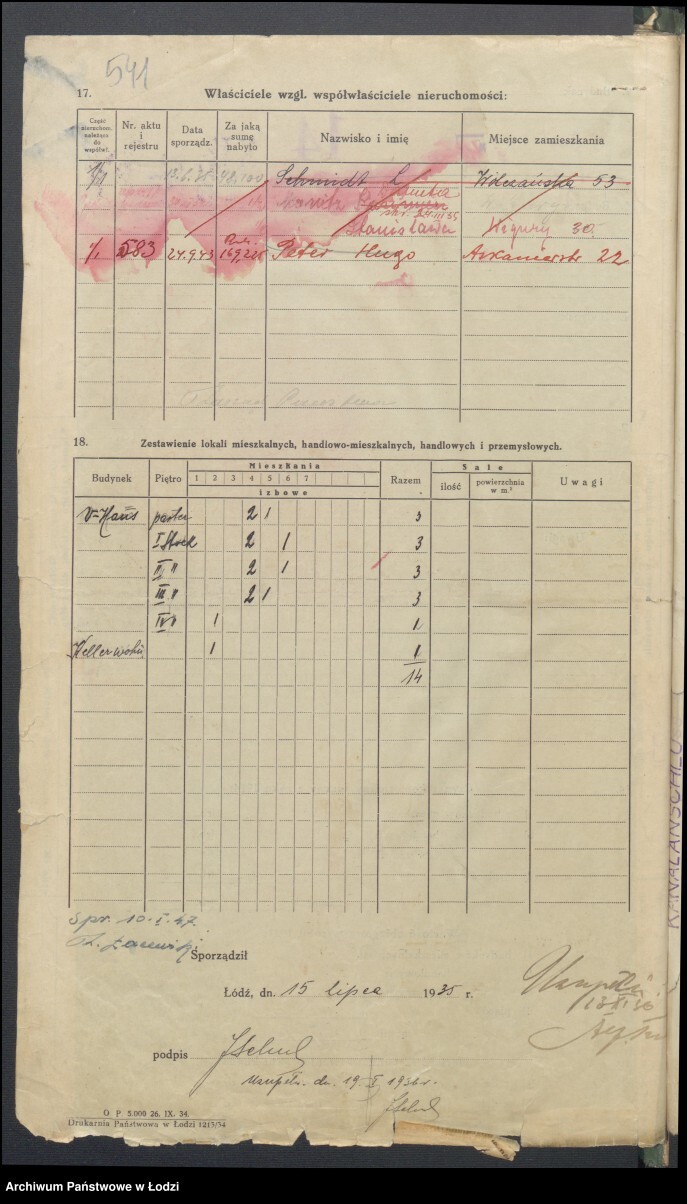 541
17. Właściciele wzgl. współwłaściciele nieruchomości:
Część nieruchom. należąca do współwł. Nr. aktu i rejestru Data sporządz. Za jaką sumę nabyto Nazwisko i imię Miejsce zamieszkania
1/1 Schmidt Wólczańska 53
Stanisława 30
1/1 583 24.9.43 Peter Hugo Askanierstr 22
18. Zestawienie lokali mieszkalnych, handlowo-mieszkalnych, handlowych i przemysłowych.
Budynek Piętro Mieszkania Razem Sale Uwagi
1 2 3 4 5 6 7 ilość powierzchnia w m.²
izbowe
V=Haus parter 2 1 3
I Stock 2 1 3
II " 2 1 3
III " 2 1 3
IV " 1 1
Kellerwohn. 1 1
14
KANALANSCHLU
Spr. 10.I.47.
Sporządził
Łódź, dn. 15 lipca 1935 r.
podpis
dn. 19 X 1936 r.
O P. 5.000 26. IX. 34.
Drukarnia Państwowa w Łodzi 1213/34
Archiwum Państwowe w Łodzi